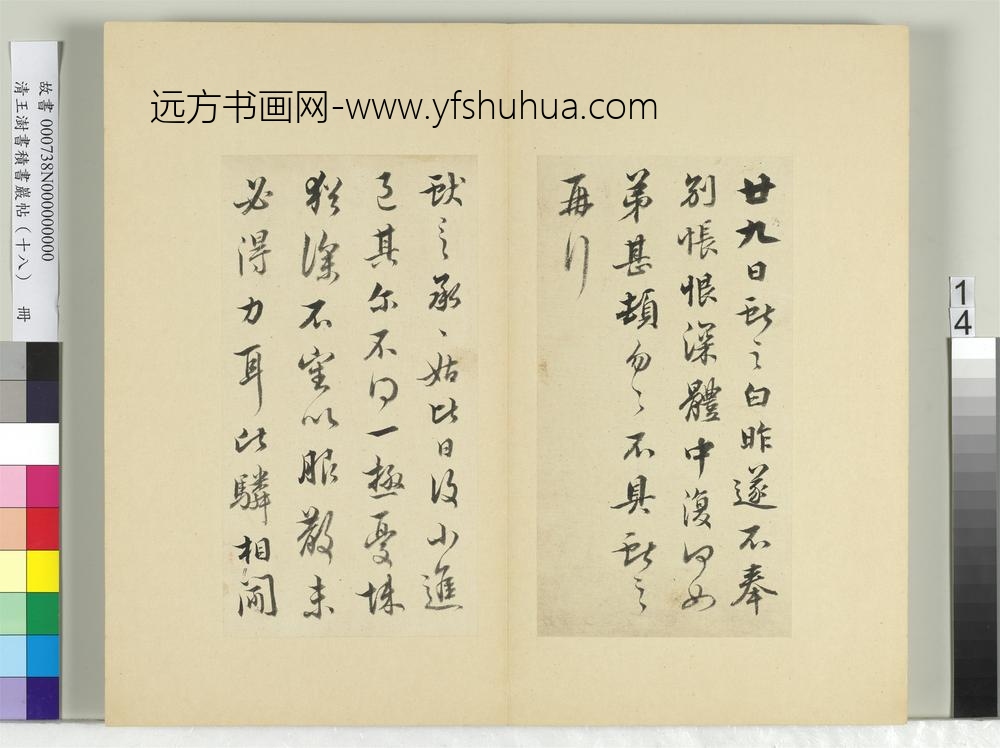 远方书画网-www.yfshuhua.com
廿九日獻之白昨遂不奉
別悵恨深體中復何如
弟甚頓匆々不具獻之
再拜
獻之承、姑比日復小進
退其尔不得一極憂悚
猶深不審以服散未
必得力耳比驎相聞
故書 000738N000000000
清王澍書積書巖帖（十八） 冊
1
4